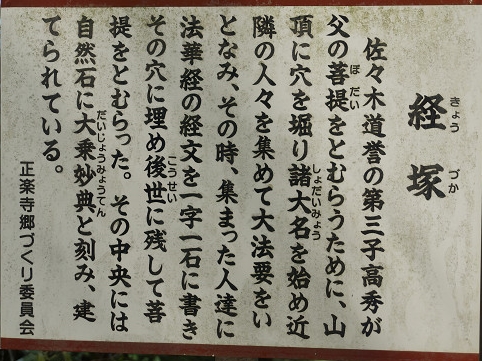 経塚
きょうづか
佐々木道誉の第三子高秀が
父の菩提をとむらうために、山
ぼだい
頂に穴を堀り諸大名を始め近
しょだいみょう
隣の人々を集めて大法要をい
となみ、その時、集まった人達に
法華経の経文を一字一石に書き
その穴に埋め後世に残して菩
こうせい
提をとむらった。その中央には
自然石に大乗妙典と刻み、建
だいじょうみょうてん
てられている。
正楽寺郷づくり委員会